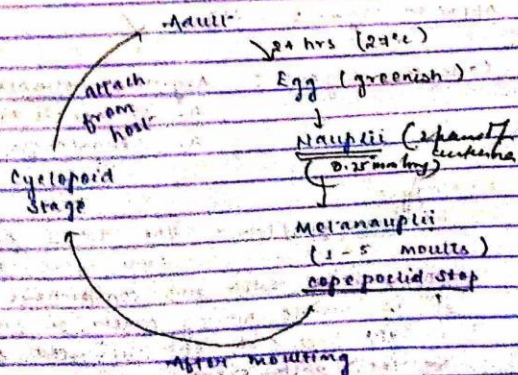 Adult
24 hrs (27°C)
Egg (greenish)
Nauplii (2 pair of
(0.25 mm long)
Metanauplii
(1-5 moults)
copepodid stop
After moulting
Cyclopoid
stage
attach
from
host